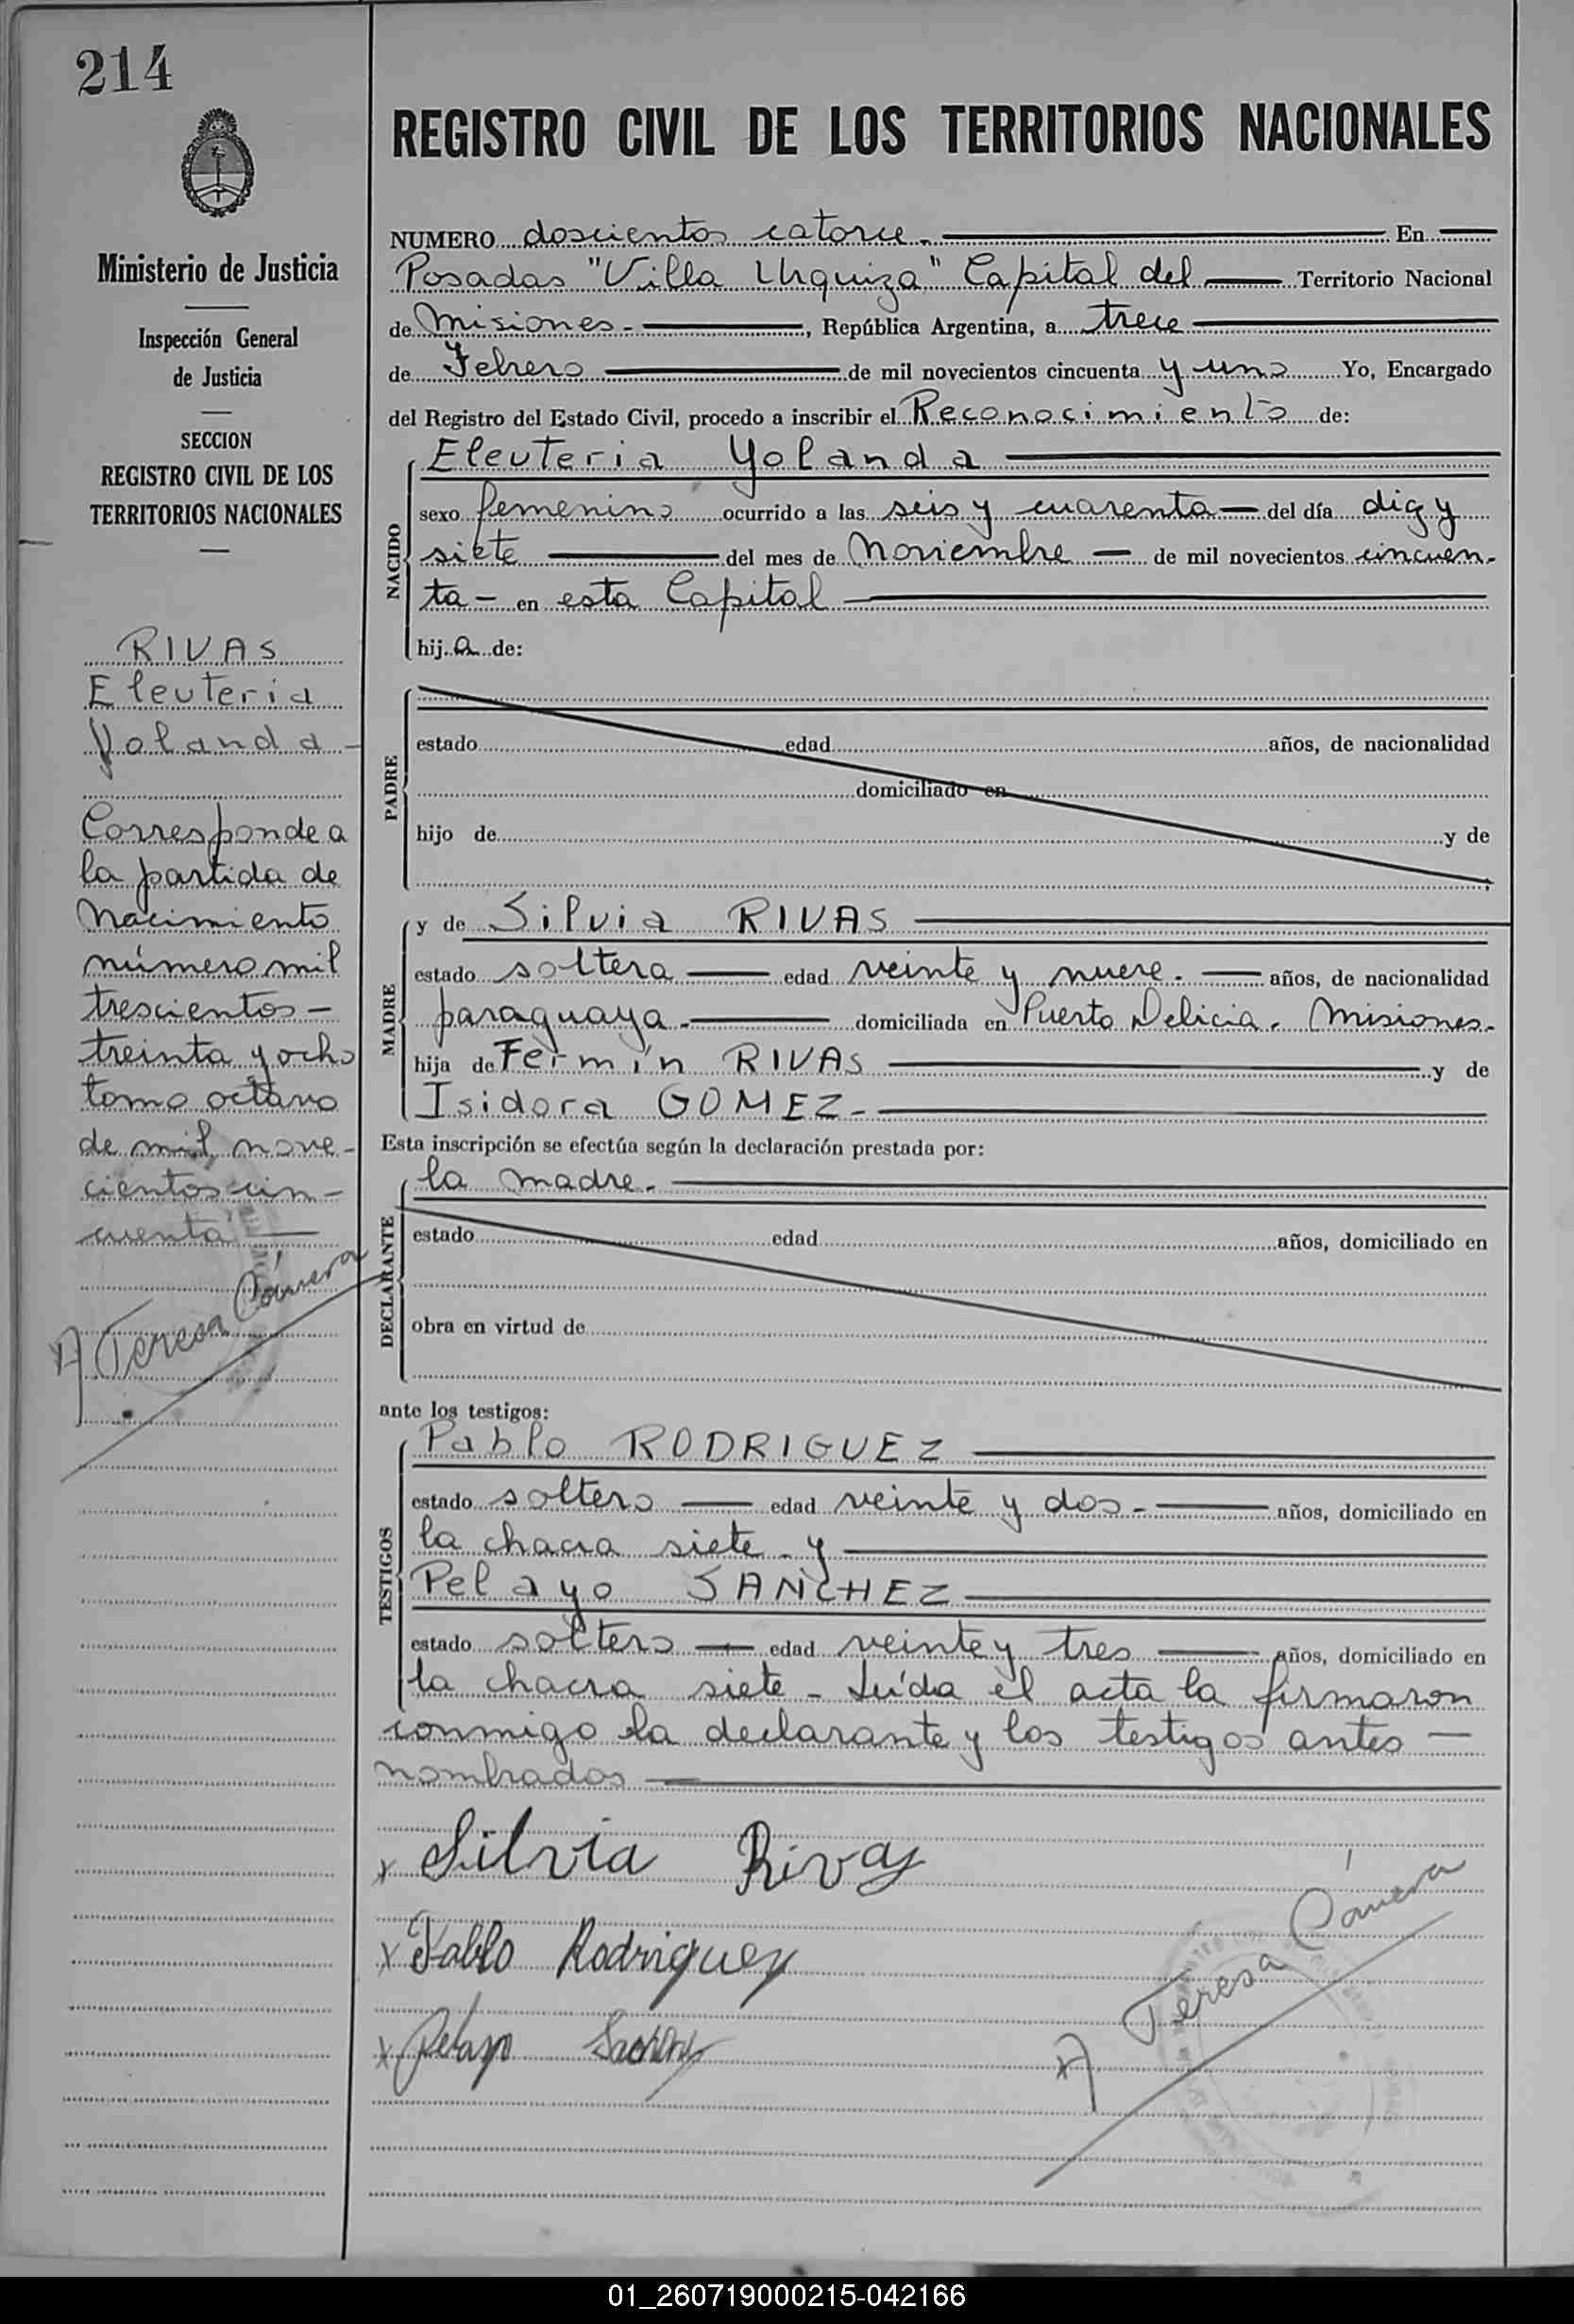 214
Ministerio de Justicia
Inspección General
de Justicia
SECCION
REGISTRO CIVIL DE LOS
TERRITORIOS NACIONALES
RIVAS
Eleuteria
Yolanda -
Corresponde a
la partida de
Nacimiento
número mil
trescientos -
treinta y ocho
tomo octavo
de mil nove-
cientos cin-
cuenta
A Teresa Cámera
REGISTRO CIVIL DE LOS TERRITORIOS NACIONALES
NUMERO doscientos catorce.- En
Posadas "Villa Urquiza" Capital del Territorio Nacional
de Misiones - , República Argentina, a trece
de Febrero de mil novecientos cincuenta y uno Yo, Encargado
del Registro del Estado Civil, procedo a inscribir el Reconocimiento de:
NACIDO
Eleuteria Yolanda
sexo femenino ocurrido a las seis y cuarenta - del día diez y
siete del mes de Noviembre - de mil novecientos cincuen-
ta - en esta Capital
hij a de:
PADRE
estado edad años, de nacionalidad
domiciliado en
hijo de y de
MADRE
y de Silvia RIVAS
estado soltera edad veinte y nueve. años, de nacionalidad
paraguaya. domiciliada en Puerto Delicia. Misiones.
hija de Fermín RIVAS y de
Isidora GOMEZ -
Esta inscripción se efectúa según la declaración prestada por:
DECLARANTE
la madre.
estado edad años, domiciliado en
obra en virtud de
ante los testigos:
TESTIGOS
Pablo RODRIGUEZ
estado soltero edad veinte y dos - años, domiciliado en
la chacra siete - y
Pelayo SANCHEZ
estado soltero edad veinte y tres años, domiciliado en
la chacra siete - Leída el acta la firmaron
conmigo la declarante y los testigos antes
nombrados
x Silvia Rivas
x Pablo Rodriguez
x Pelayo Sanchez
A Teresa Cámera
01_260719000215-042166